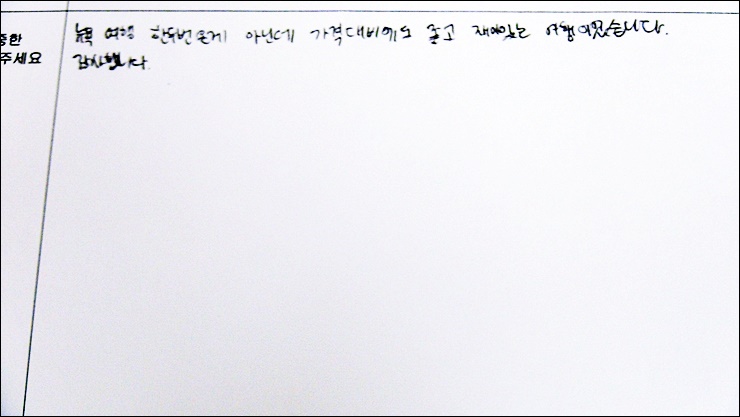 중한
주세요
뉴욕 여행 한두번온게 아닌데 가격대비에도 좋고 재미있는 여행이었습니다.
감사합니다.